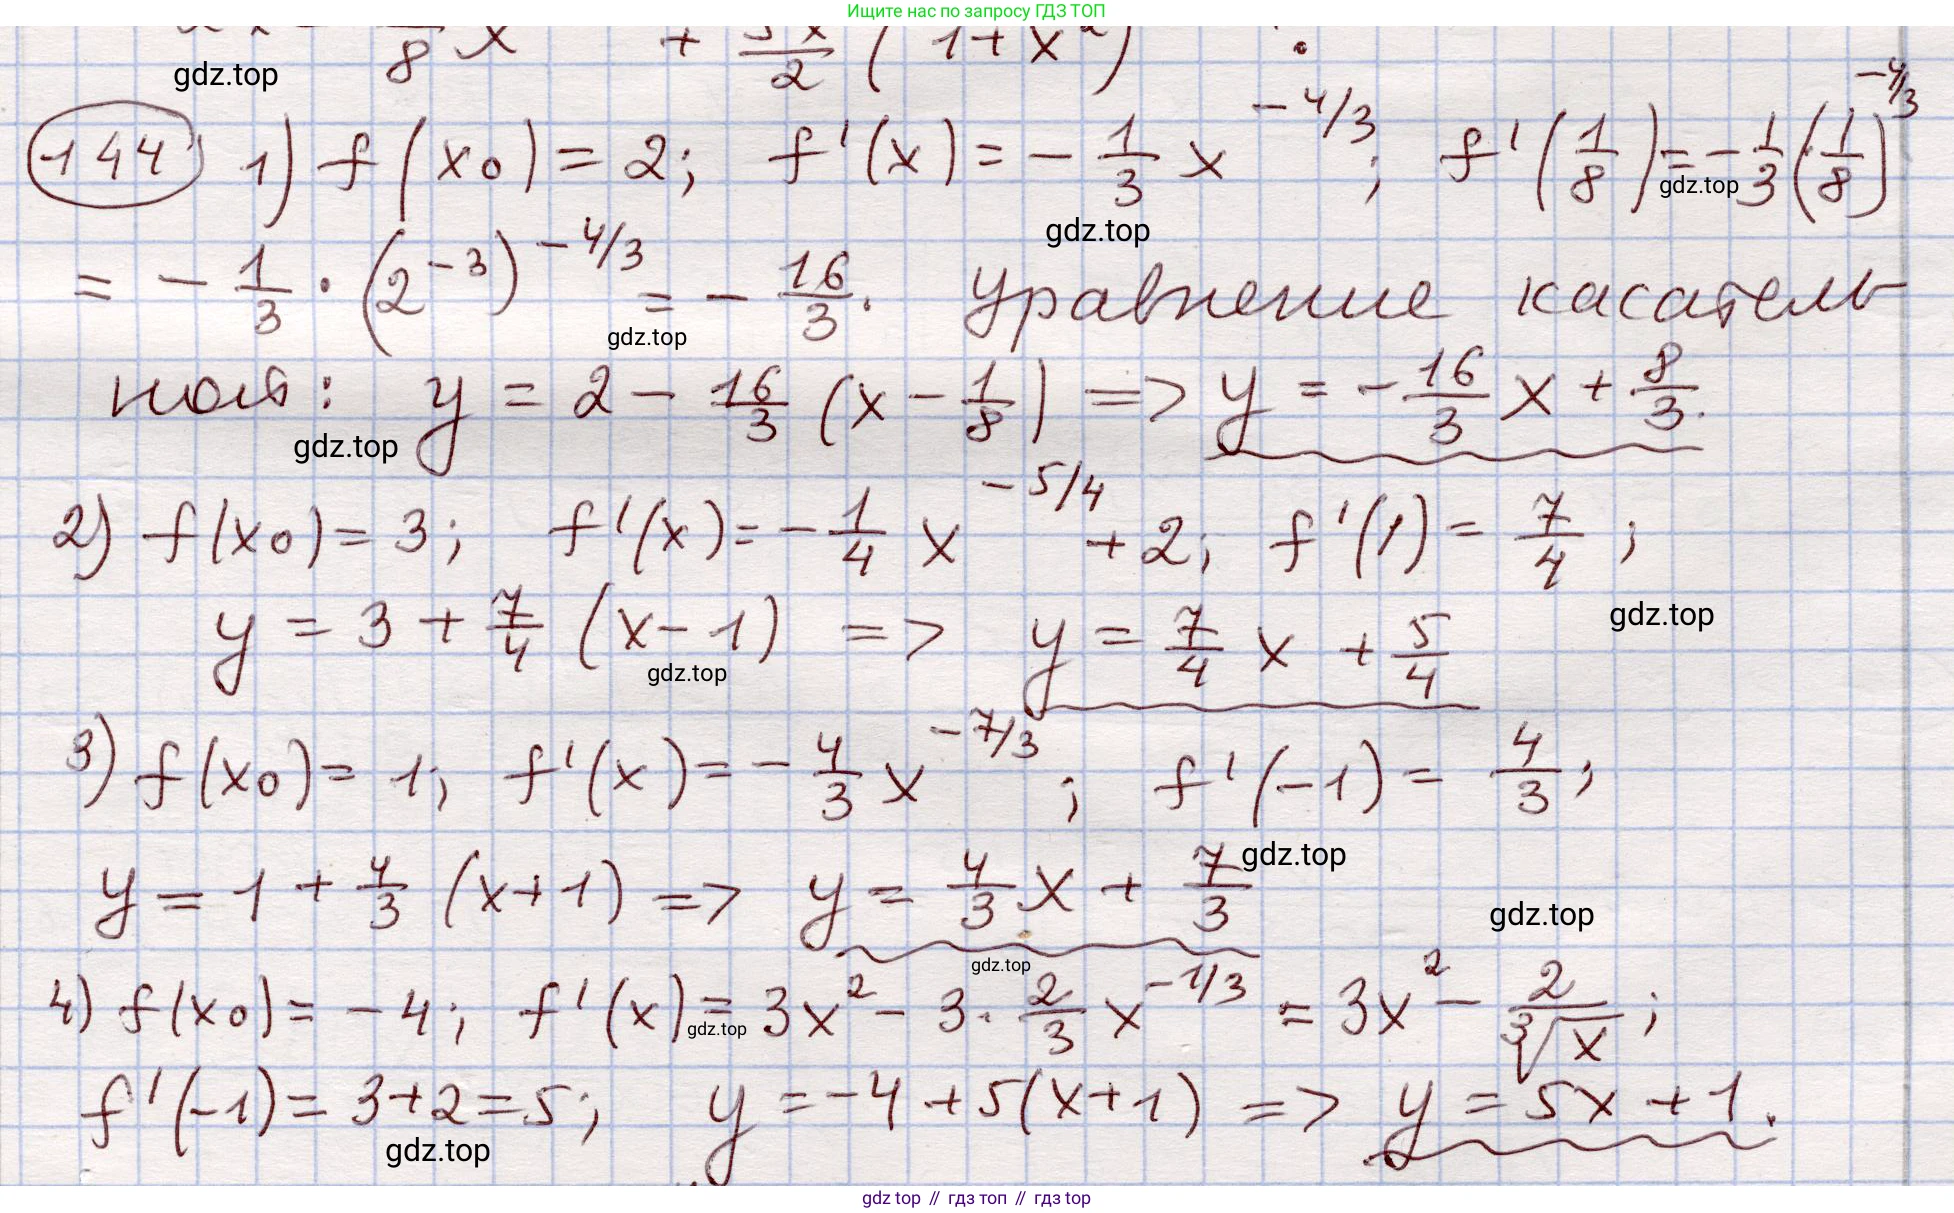 Ищите нас по запросу ГДЗ ТОП
8 x + 2 (1+x²).
gdz.top
144 1) f(x₀) = 2; f'(x) = -1/3 x^(-4/3); f'(1/8) = -1/3 (1/8)^(-4/3)
gdz.top
gdz.top
= -1/3 · (2^(-3))^(-4/3) = -16/3. Уравнение касатель
gdz.top
ной: y = 2 - 16/3 (x - 1/8) => y = -16/3 x + 8/3.
gdz.top
2) f(x₀) = 3; f'(x) = -1/4 x^(-5/4) + 2; f'(1) = 7/4;
gdz.top
y = 3 + 7/4 (x - 1) => y = 7/4 x + 5/4
gdz.top
3) f(x₀) = 1; f'(x) = -4/3 x^(-7/3); f'(-1) = 4/3;
gdz.top
y = 1 + 4/3 (x+1) => y = 4/3 x + 7/3
gdz.top
gdz.top
4) f(x₀) = -4; f'(x) = 3x² - 3 · 2/3 x^(-1/3) = 3x² - 2/∛x;
gdz.top
f'(-1) = 3+2=5; y = -4 + 5(x+1) => y = 5x + 1.
gdz.top
gdz top // гдз топ // гдз top